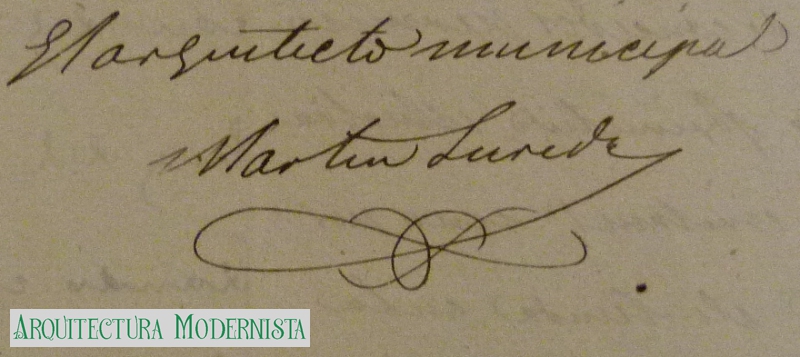 El arquitecto municipal
Martin Sureda
ARQUITECTURA MODERNISTA